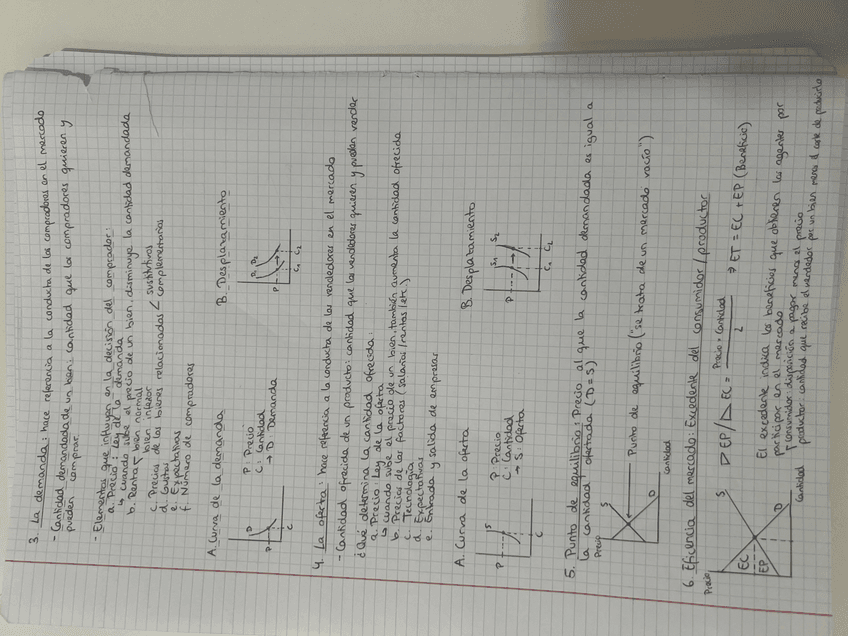 3. La demanda: hace referencia a la conducta de los compradores en el mercado
- Cantidad demandada de un bien: cantidad que los compradores quieren y
pueden comprar.
- Elementos que influyen en la decisión del comprador:
a. Precio: Ley de la demanda
↳ cuando sube el precio de un bien, disminuye la cantidad demandada
b. Renta < bien normal
bien inferior
c. Precios de los bienes relacionados < sustitutivos
complementarios
d. Gustos
e. Expectativas
f. Número de compradores
A. Curva de la demanda
B. Desplazamiento
P
D
C
P: Precio
C: Cantidad
→ D: Demanda
P
D1 D2
C1 C2
4. La oferta: hace referencia a la conducta de los vendedores en el mercado
- Cantidad ofrecida de un producto: cantidad que los vendedores quieren y pueden vender
¿Qué determina la cantidad ofrecida:
a. Precio Ley de la oferta
↳ cuando sube el precio de un bien, también aumenta la cantidad ofrecida
b. Precios de los factores (salarios/rentas/etc.)
c. Tecnología
d. Expectativas
e. Entrada y salida de empresas
A. Curva de la oferta
B. Desplazamiento
P
S
C
P: Precio
C: Cantidad
→ S: Oferta
P
S1 S2
C1 C2
5. Punto de equilibrio: Precio al que la cantidad demandada es igual a
la cantidad ofertada (D=S)
Precio
S
D
Cantidad
Punto de equilibrio ("se trata de un mercado vacío")
6. Eficiencia del mercado: Excedente del consumidor/productor
Precio
S
EC
EP
D
Cantidad
▷ EP/ ▷ EC = Precio × Cantidad / 2 ⇒ ET = EC + EP (Beneficio)
El excedente indica los beneficios que obtienen los agentes por
participar en el mercado
consumidor: disposición a pagar menos el precio
productor: cantidad que recibe el vendedor por un bien menos el coste de producirlo